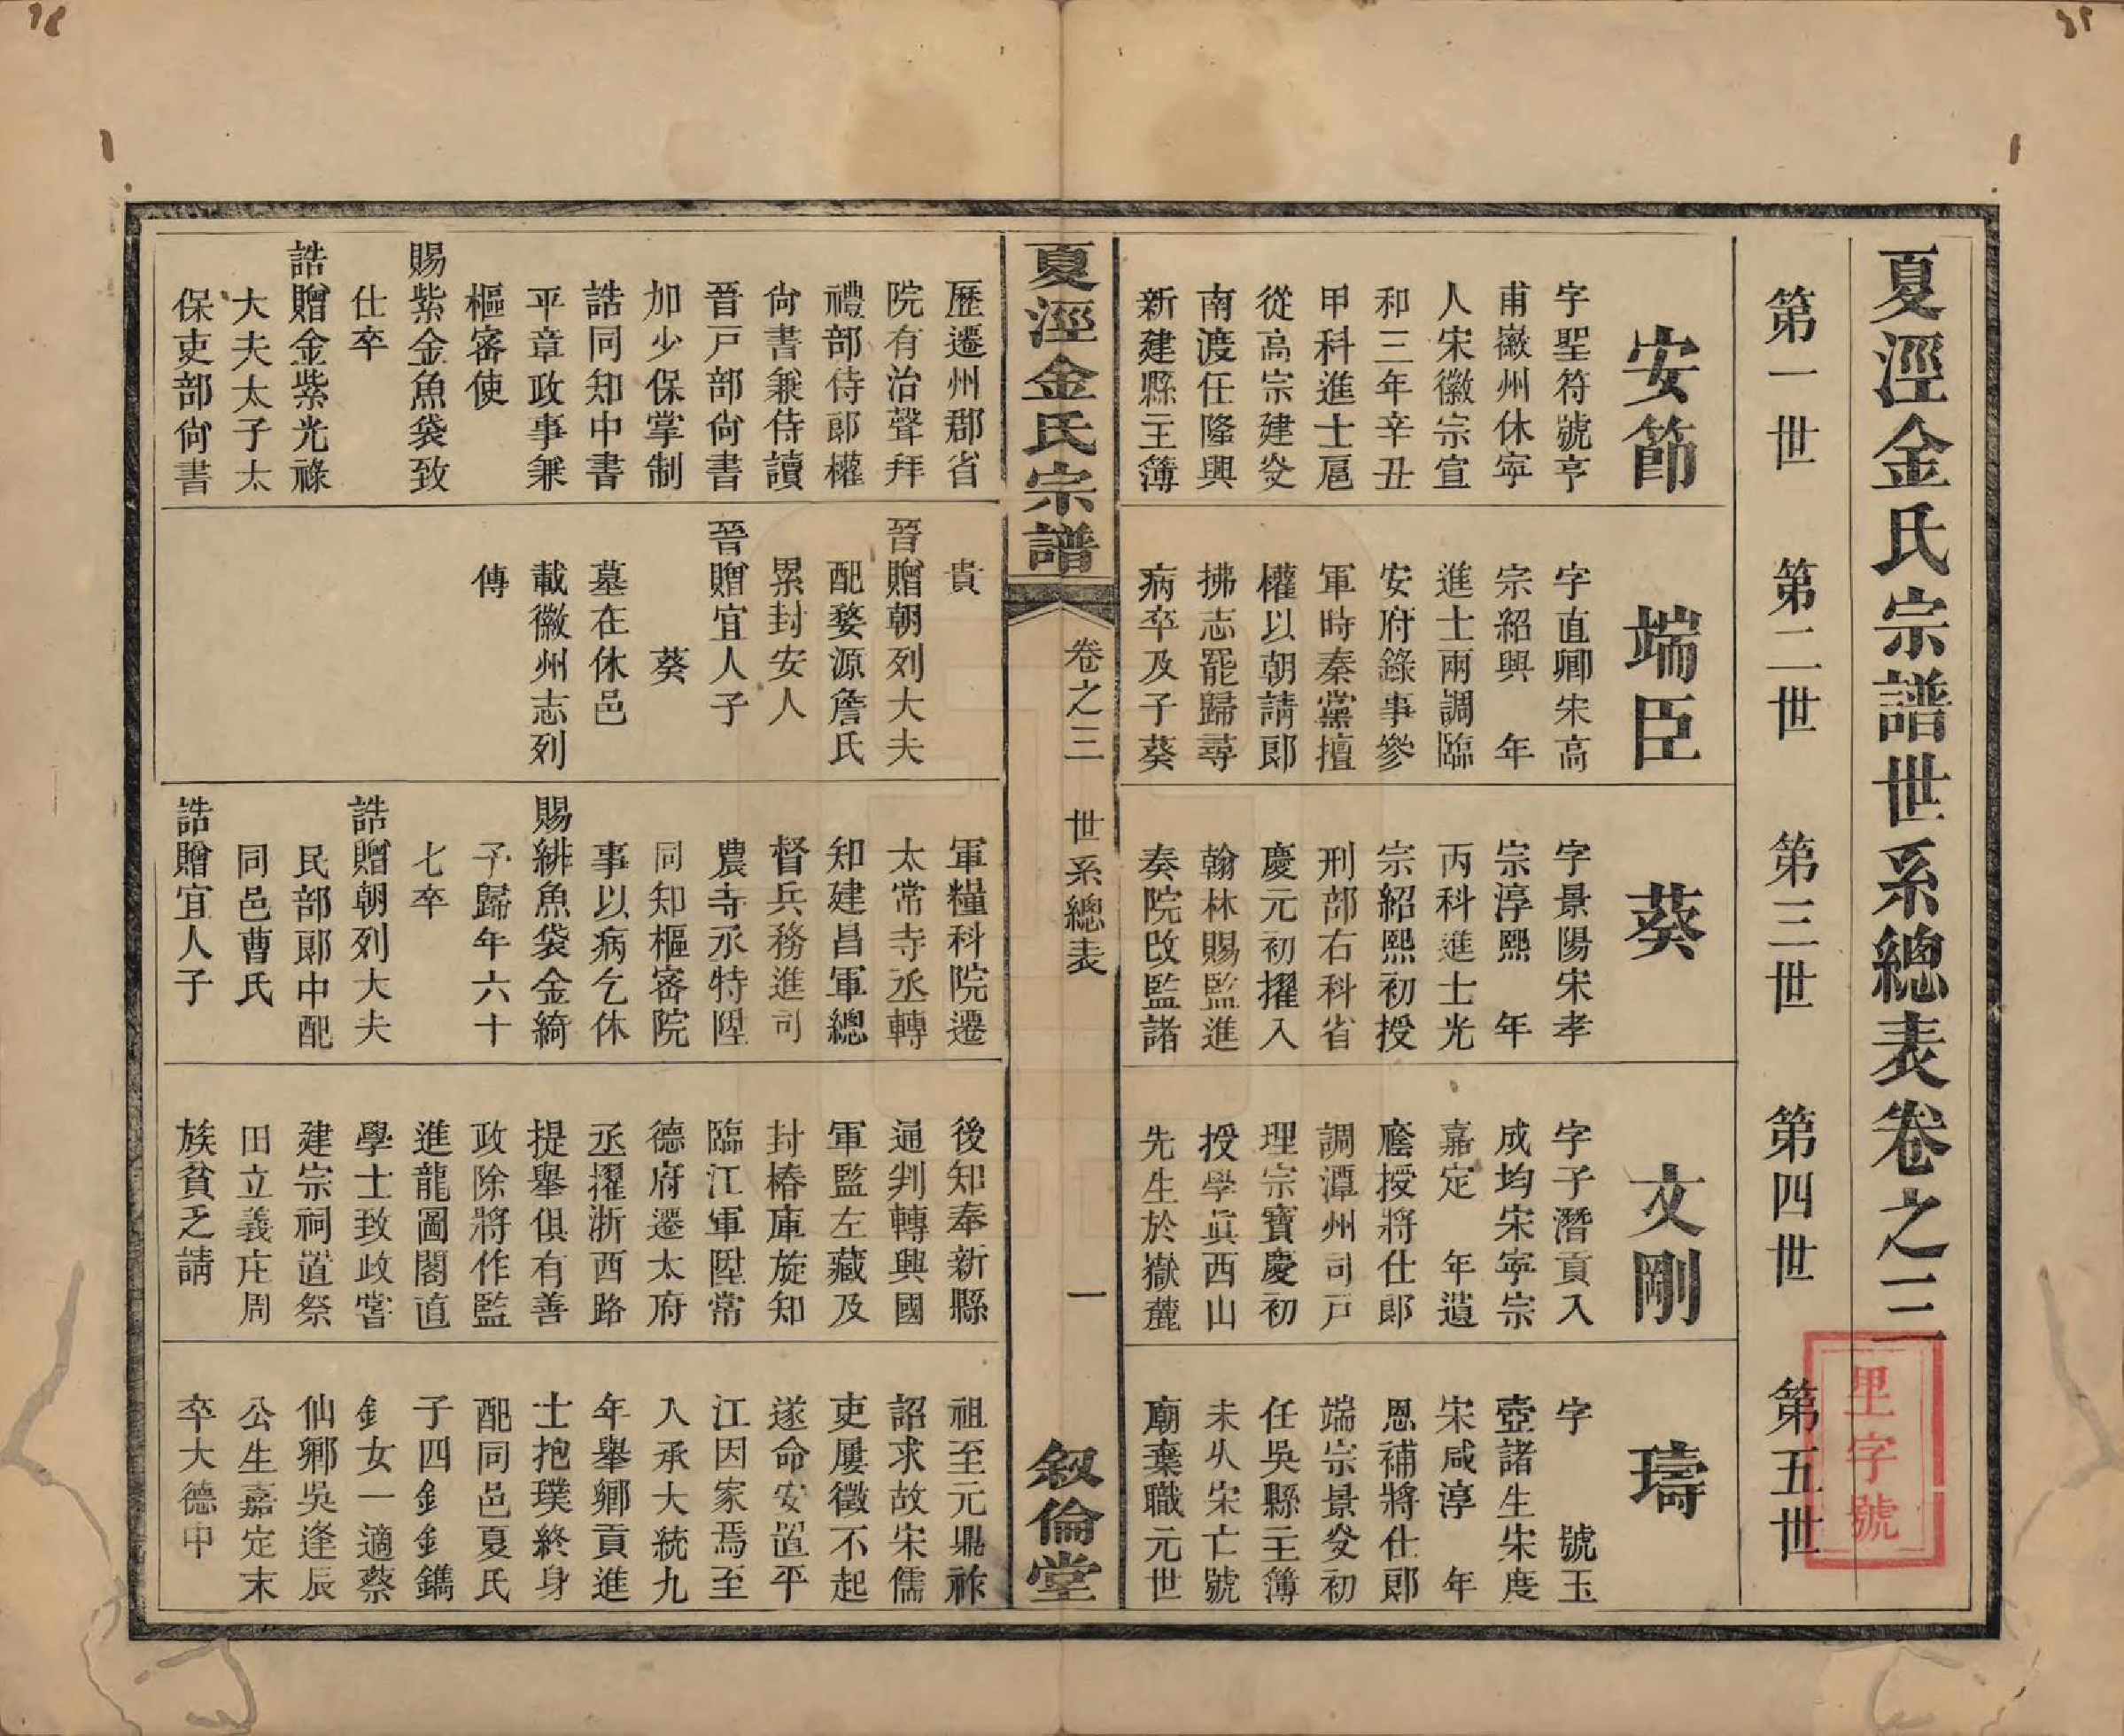 夏涇金氏宗譜世系總表卷之三
第一世
第二世
第三世
第四世
第五世
安節
字聖符號亨
甫徽州休寧
人宋徽宗宣
和三年辛丑
甲科進士扈
從高宗建炎
南渡任隆興
新建縣主簿
端臣
字直卿宋高
宗紹興　年
進士兩調臨
安府錄事參
軍時秦黨擅
權以朝請郎
拂志罷歸尋
病卒及子葵
葵
字景陽宋孝
宗淳熙　年
丙科進士光
宗紹熙初授
刑部右科省
慶元初擢入
翰林賜監進
奏院改監諸
文剛
字子潛貢入
成均宋寧宗
嘉定　年遺
廕授將仕郎
調潭州司戸
理宗寶慶初
授學眞西山
先生於嶽麓
璹
字　　號玉
壺諸生宋度
宋咸淳　年
恩補將仕郎
端宗景炎初
任吳縣主簿
未乆宋亡號
廟棄職元世
夏涇金氏宗譜
卷之三　世系總表
一
敘倫堂
歷遷州郡省
院有治聲拜
禮部侍郎權
尙書兼侍讀
晉戸部尙書
加少保掌制
誥同知中書
平章政事兼
樞密使
賜紫金魚袋致
仕卒
誥贈金紫光祿
大夫太子太
保吏部尙書
貴
晉贈朝列大夫
配婺源詹氏
累封安人
晉贈宜人子
葵
墓在休邑
載徽州志列
傳
軍糧科院遷
太常寺丞轉
知建昌軍總
督兵務進司
農寺丞特陞
同知樞密院
事以病乞休
賜緋魚袋金綺
予歸年六十
七卒
誥贈朝列大夫
民部郎中配
同邑曹氏
誥贈宜人子
後知奉新縣
通判轉興國
軍監左藏及
封樁庫旋知
臨江軍陞常
德府遷太府
丞擢浙西路
提舉俱有善
政除將作監
進龍圖閣直
學士致政嘗
建宗祠置祭
田立義庄周
族貧乏請
祖至元鼎祚
詔求故宋儒
吏屢徵不起
遂命安置平
江因家焉至
入承大統九
年舉鄕貢進
士抱璞終身
配同邑夏氏
子四釗鐫
釗女一適蔡
仙鄕吳逢辰
公生嘉定末
卒大德中
里字號